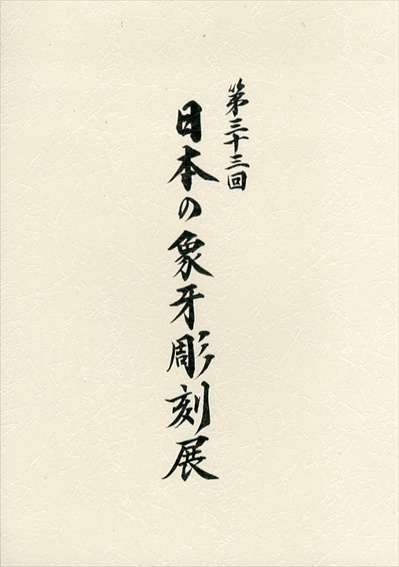 第三十三回
日本の象牙彫刻展